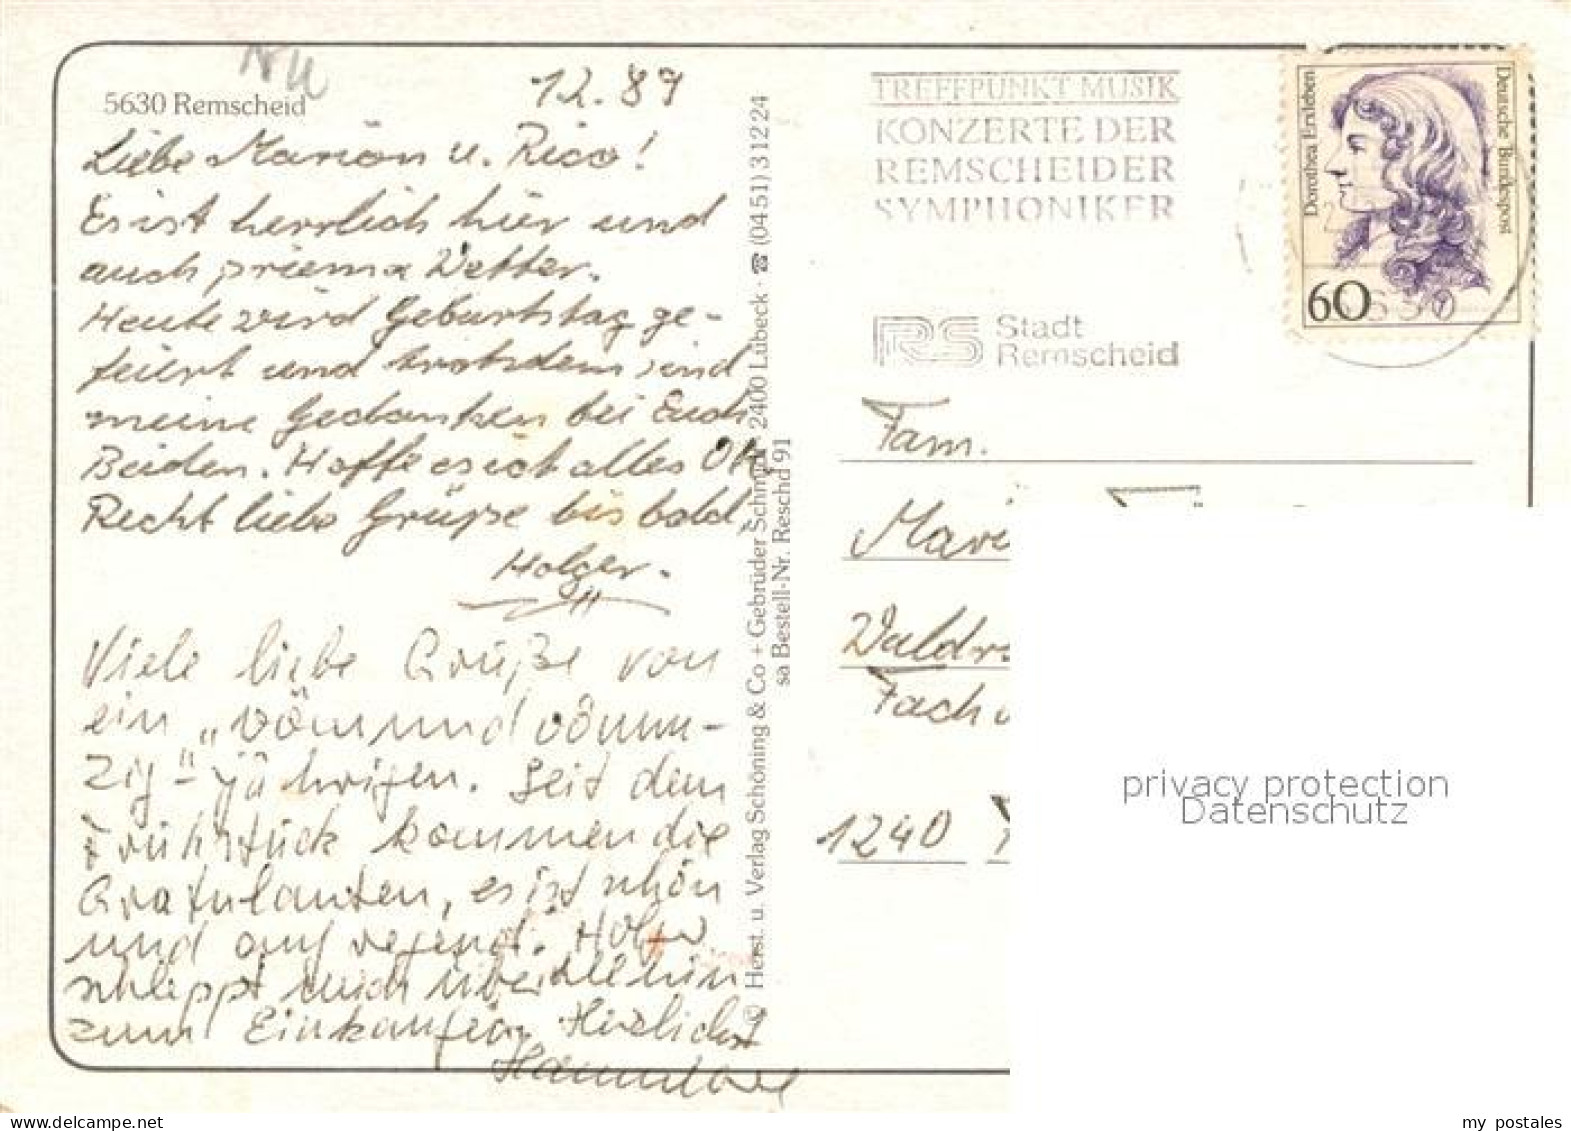 5630 Remscheid
12.89
Liebe Marion u. Rico!
Es ist herrlich hier und
auch priema Wetter.
Heute wird Geburtstag ge-
feiert und trotzdem sind
meine Gedanken bei Euch
Beiden. Hoffe es ist alles OK,
Recht liebe Grüße bis bald,
Holger.
Viele liebe Grüße von
ein
zig"-jährigen. Seit dem
Frühstück kommen die
Gratulanten, es ist schön
und aufregend. Holger
schleppt mich überallhin
zum Einkaufen. Herzlichst
© Herst. u. Verlag Schöning & Co + Gebrüder Schmidt · 2400 Lübeck · ☎ (04 51) 3 12 24
sa Bestell-Nr. Reschd 91
TREFFPUNKT MUSIK
KONZERTE DER
REMSCHEIDER
SYMPHONIKER
RS Stadt
Remscheid
Dorothea Erxleben
Deutsche Bundespost
60
Fam.
Mari
Waldrs
Fach
1240
privacy protection
Datenschutz
Ansichtskarten-Center.de
my_postales